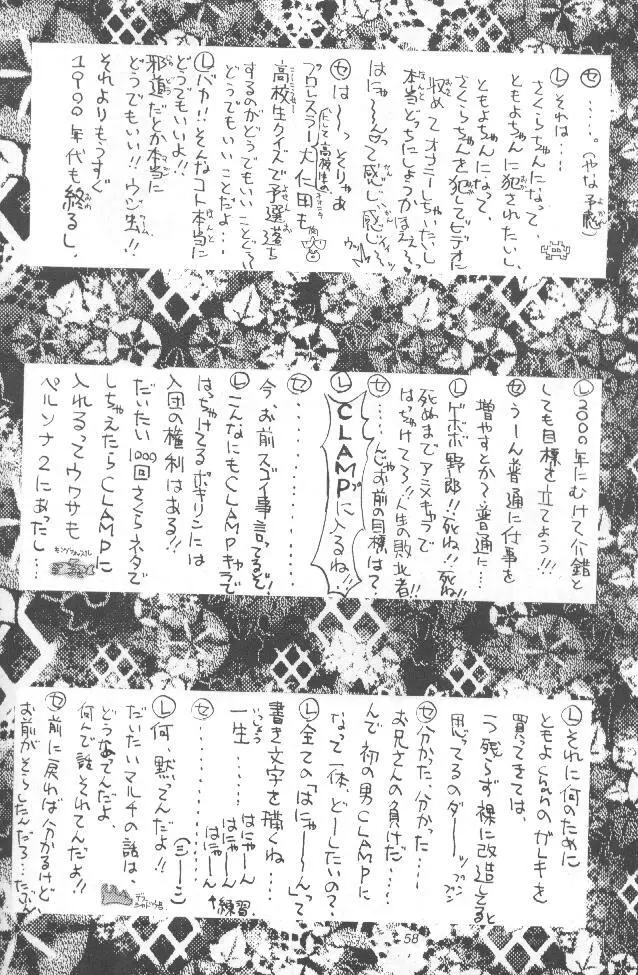 セ ‥‥。(やな予感)
セ は〜っ そりゃあ
プロレスラー大仁田も
高校生クイズで予選落ち
するのがどうでもいいことぐらい
どうでもいいことだよ…
L バカ!!そんなコト本当に
どうでもいいよ!!
邪道だとか本当に
どうでもいい!!ウジ虫!!
それよりもうすぐ
1900年代も終るし、
L 2000年にむけて介錯と
しても目標を立てよう!!!
セ うーん普通に仕事を
増やすとか?普通に…
L ゲボボ野郎!!死ね!!死ね!!
死ぬまでアニメキャラで
はっちゃけてろ!!人生の敗北者!!
セ ‥‥じゃお前の目標は?
L CLAMPに入るね!!
セ ‥‥‥‥‥‥
今、お前スゴイ事言ってるぞ
L こんなにもCLAMPキャラで
はっちゃけてるボキリンには
入団の権利はある!!
だいたい1000回さくらネタで
しちゃえたらCLAMPに
入れるってウワサも
ペルソナ2にあったし…
L それに何のために
ともよchanのガレキを
買ってきては、
一つ残らず裸に改造してると
思ってるのダーーッ プンプン
セ 分かった、分かった…
お兄さんの負けだ……
んで初の男CLAMPに
なって一体、どーしたいの?
L 全ての「はにゃ〜〜ん」って
書き文字を描くね…
一生
はにゃーん
はにゃーん
はにゃーん
↑練習.
セ ‥‥‥‥‥‥
L 何、黙ってんだよ!!
だいたいマルチの話は、
どうなってんだよ、
何んで話それてんだよ!!
セ 前に戻れば分かるけど
お前がそらしたんだろ…たぶん
58